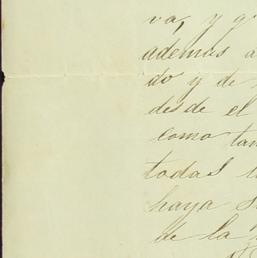 va, y q
ademas a
do y de
desde el
como tam
todas
haya s
de la